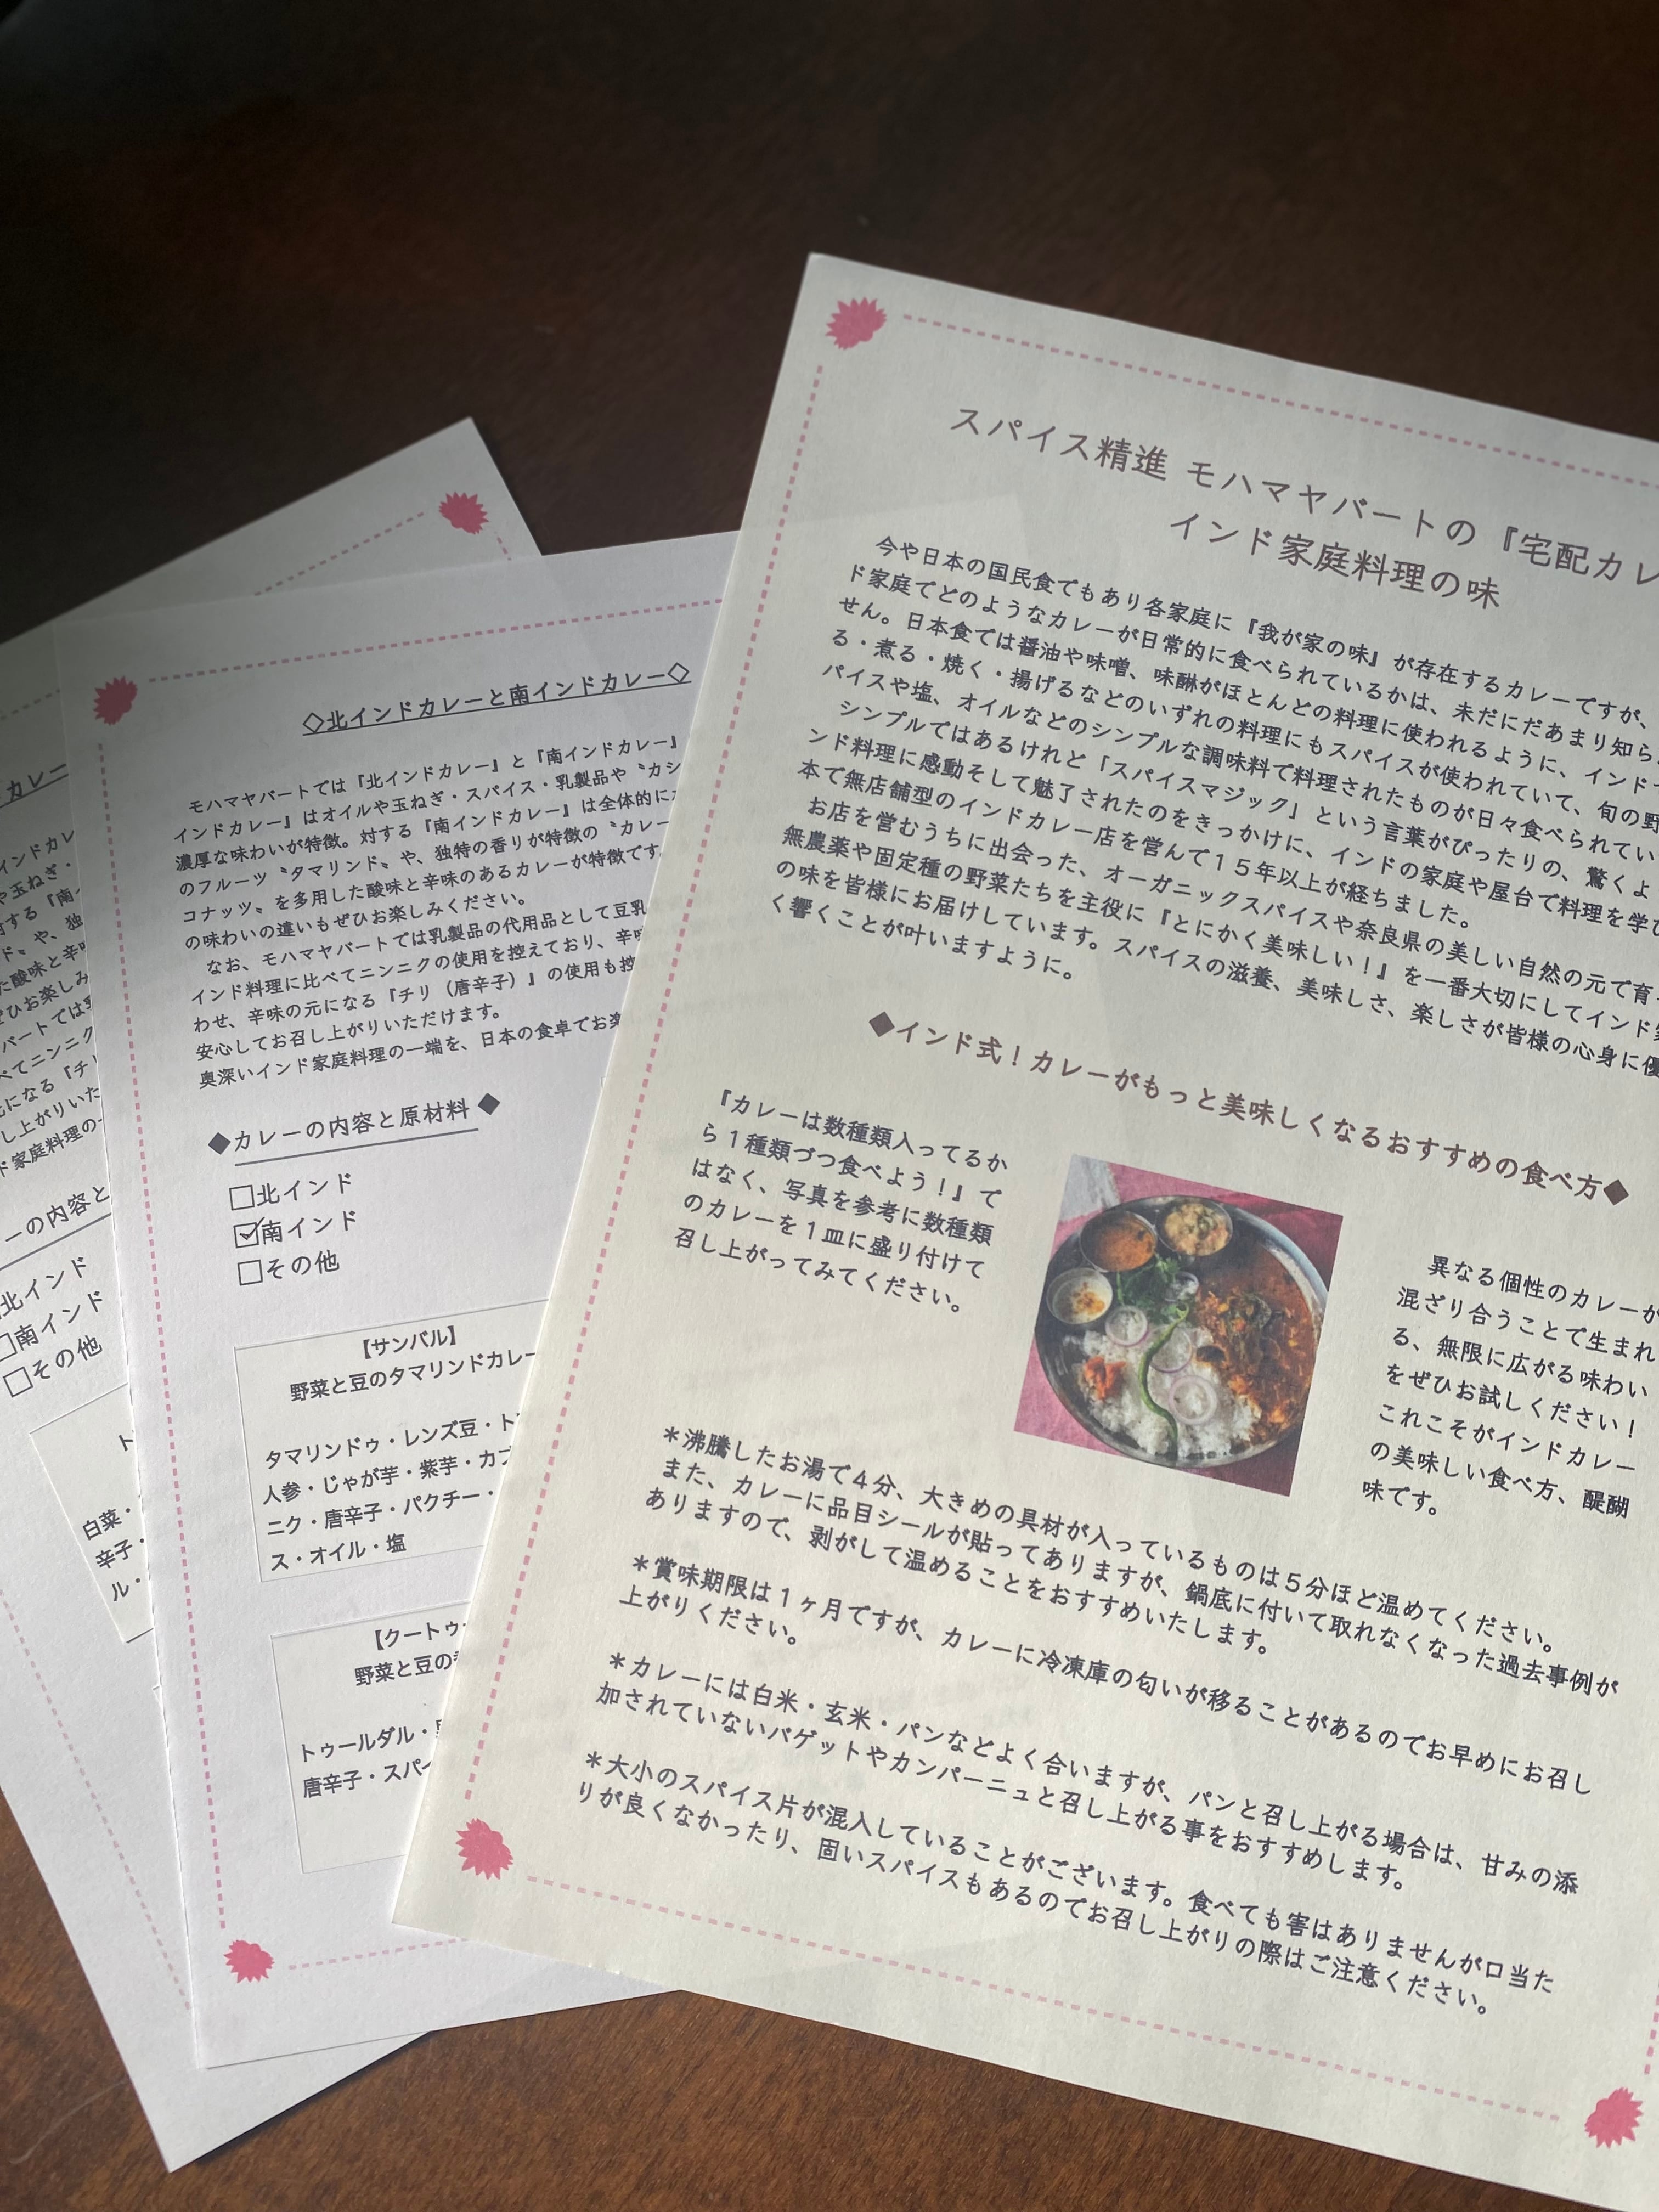 スパイス精進 モハマヤバートの『宅配カレ
インド家庭料理の味
今や日本の国民食でもあり各家庭に『我が家の味』が存在するカレーですが、
ド家庭でどのようなカレーが日常的に食べられているかは、未だにだあまり知ら
せん。日本食では醤油や味噌、味醂がほとんどの料理に使われるように、インド
る・煮る・焼く・揚げるなどのいずれの料理にもスパイスが使われていて、旬の野
パイスや塩、オイルなどのシンプルな調味料で料理されたものが日々食べられてい
シンプルではあるけれど「スパイスマジック」という言葉がぴったりの、驚くよ
ンド料理に感動そして魅了されたのをきっかけに、インドの家庭や屋台で料理を学び
本で無店舗型のインドカレー店を営んで１５年以上が経ちました。
お店を営むうちに出会った、オーガニックスパイスや奈良県の美しい自然の元で育
無農薬や固定種の野菜たちを主役に『とにかく美味しい！』を一番大切にしてインド
の味を皆様にお届けしています。スパイスの滋養、美味しさ、楽しさが皆様の心身に優
く響くことが叶いますように。
◆インド式！カレーがもっと美味しくなるおすすめの食べ方◆
『カレーは数種類入ってるか
ら１種類づつ食べよう！』で
はなく、写真を参考に数種類
のカレーを１皿に盛り付けて
召し上がってみてください。
異なる個性のカレーが
混ざり合うことで生まれ
る、無限に広がる味わい
をぜひお試しください！
これこそがインドカレー
の美味しい食べ方、醍醐
味です。
＊沸騰したお湯で４分、大きめの具材が入っているものは５分ほど温めてください。
また、カレーに品目シールが貼ってありますが、鍋底に付いて取れなくなった過去事例が
ありますので、剥がして温めることをおすすめいたします。
＊賞味期限は１ヶ月ですが、カレーに冷凍庫の匂いが移ることがあるのでお早めにお召し
上がりください。
＊カレーには白米・玄米・パンなどよく合いますが、パンと召し上がる場合は、甘みの添
加されていないバゲットやカンパーニュと召し上がる事をおすすめします。
＊大小のスパイス片が混入していることがございます。食べても害はありませんが口当た
りが良くなかったり、固いスパイスもあるのでお召し上がりの際はご注意ください。
◇北インドカレーと南インドカレー◇
モハマヤバートでは『北インドカレー』と『南インドカレー』
インドカレー』はオイルや玉ねぎ・スパイス・乳製品や〝カシ
濃厚な味わいが特徴。対する『南インドカレー』は全体的に
のフルーツ〝タマリンド〟や、独特の香りが特徴の〝カレー
コナッツ〟を多用した酸味と辛味のあるカレーが特徴です
の味わいの違いもぜひお楽しみください。
なお、モハマヤバートでは乳製品の代用品として豆乳
インド料理に比べてニンニクの使用を控えており、辛味
わせ、辛味の元になる『チリ（唐辛子）』の使用も控
安心してお召し上がりいただけます。
奥深いインド家庭料理の一端を、日本の食卓でお楽
◆カレーの内容と原材料◆
□北インド
☑南インド
□その他
【サンバル】
野菜と豆のタマリンドカレー
タマリンドゥ・レンズ豆・ト
人参・じゃが芋・紫芋・カブ
ニク・唐辛子・パクチー・
ス・オイル・塩
【クートゥ
野菜と豆の
トゥールダル・
唐辛子・スパイ
カレー
インドカレ
や玉ねぎ・
する『南
ド〟や、独
た酸味と辛
ぜひお楽しみ
バートでは
べてニンニク
になる『チ
し上がりいた
ド家庭料理の
ーの内容と
北インド
□南インド
□その他
白菜・
辛子・
ル・